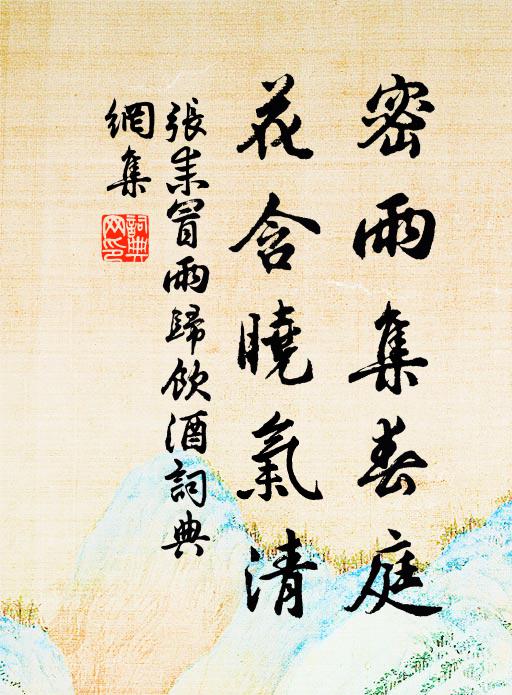 密雨集春庭
花含曉氣清
張耒冒雨歸飲酒詞典
網集
詞典網印